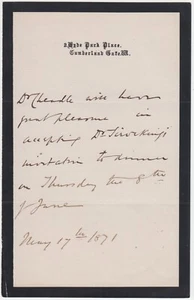 2, Hyde Park Place,
Cumberland Gate, W.
Dr Cheadle will have
great pleasure in
accepting Dr Sieveking's
invitation to dinner
on Thursday the 8th
of June
May 17th 1871